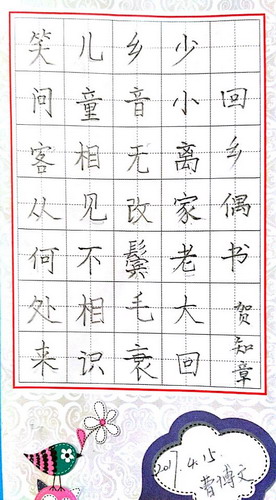 回乡偶书
贺知章
少小离家老大回
乡音无改鬓毛衰
儿童相见不相识
笑问客从何处来
2017.4.15
曹博文